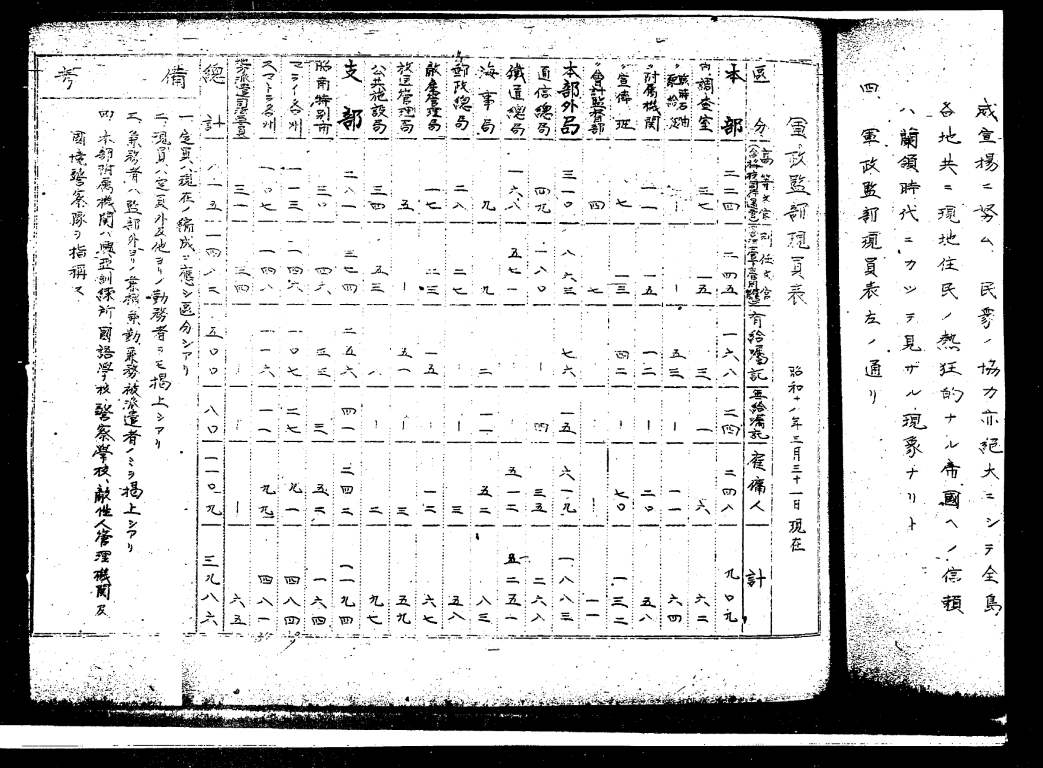 威宣揚ニ努ム、民衆ノ協力亦絶大ニシテ全島
各地共ニ現地住民ノ熱狂的ナル帝國ヘノ信頼
ハ蘭領時代ニカツテ見ザル現象ナリト
四、軍政監部現員表左ノ通リ
軍政監部現員表 昭和十八年三月三十一日現在
區分 高等文官 判任文官 有給囑託 無給囑託 雇傭人 計
本部 二二四 二四五 一六八 二四 二四八 九〇九
〃調査室 三七 一五 三 一 六 六二
〃 一 一 五三 一 一一 六四
〃附属機関 一一 一五 一二 一 二〇 五八
〃宣傳班 七 一三 四二 一 七〇 一三二
〃會計監督部 四 七 一 一 一一
本部外局 三一〇 八六三 七六 一五 六一九 一八八三
通信總局 四九 一八〇 四 三五 二六八
鐵道總局 一六八 五七一 五一二 一二五一
海事局 九 九 二 一一 五二 八三
郵政總局 二八 二七 三 五八
敵産管理局 一七 二三 一五 一二 六七
放送管理局 五 一 五一 一 三 五九
公共施設局 三四 五三 八 一 二 九七
支部 二八一 三七四 二五六 四一 二四二 一一九四
昭南特別市 三〇 四六 三三 三 五二 一六四
マライ各州 一一三 一四六 一〇七 二七 九一 四八四
スマトラ各州 一〇七 一四八 一一六 一一 九九 四八一
三一 三四 一 一 一 六五
總計 八一五 一四八二 五〇〇 八〇 一一〇九 三九八六
備考
一、定員ハ現在ノ編成ニ應シ區分シアリ
二、現員ハ定員外及他ヨリノ勤務者ヲモ掲上シアリ
三、兼務者ハ監部外ヨリノ兼務兼勤業務被派遣者ノミヲ掲上シアリ
四、本部附属機関ハ興亜訓練所、國語學校、警察學校、敵性人管理機関及
國境警察隊ヲ指稱ス